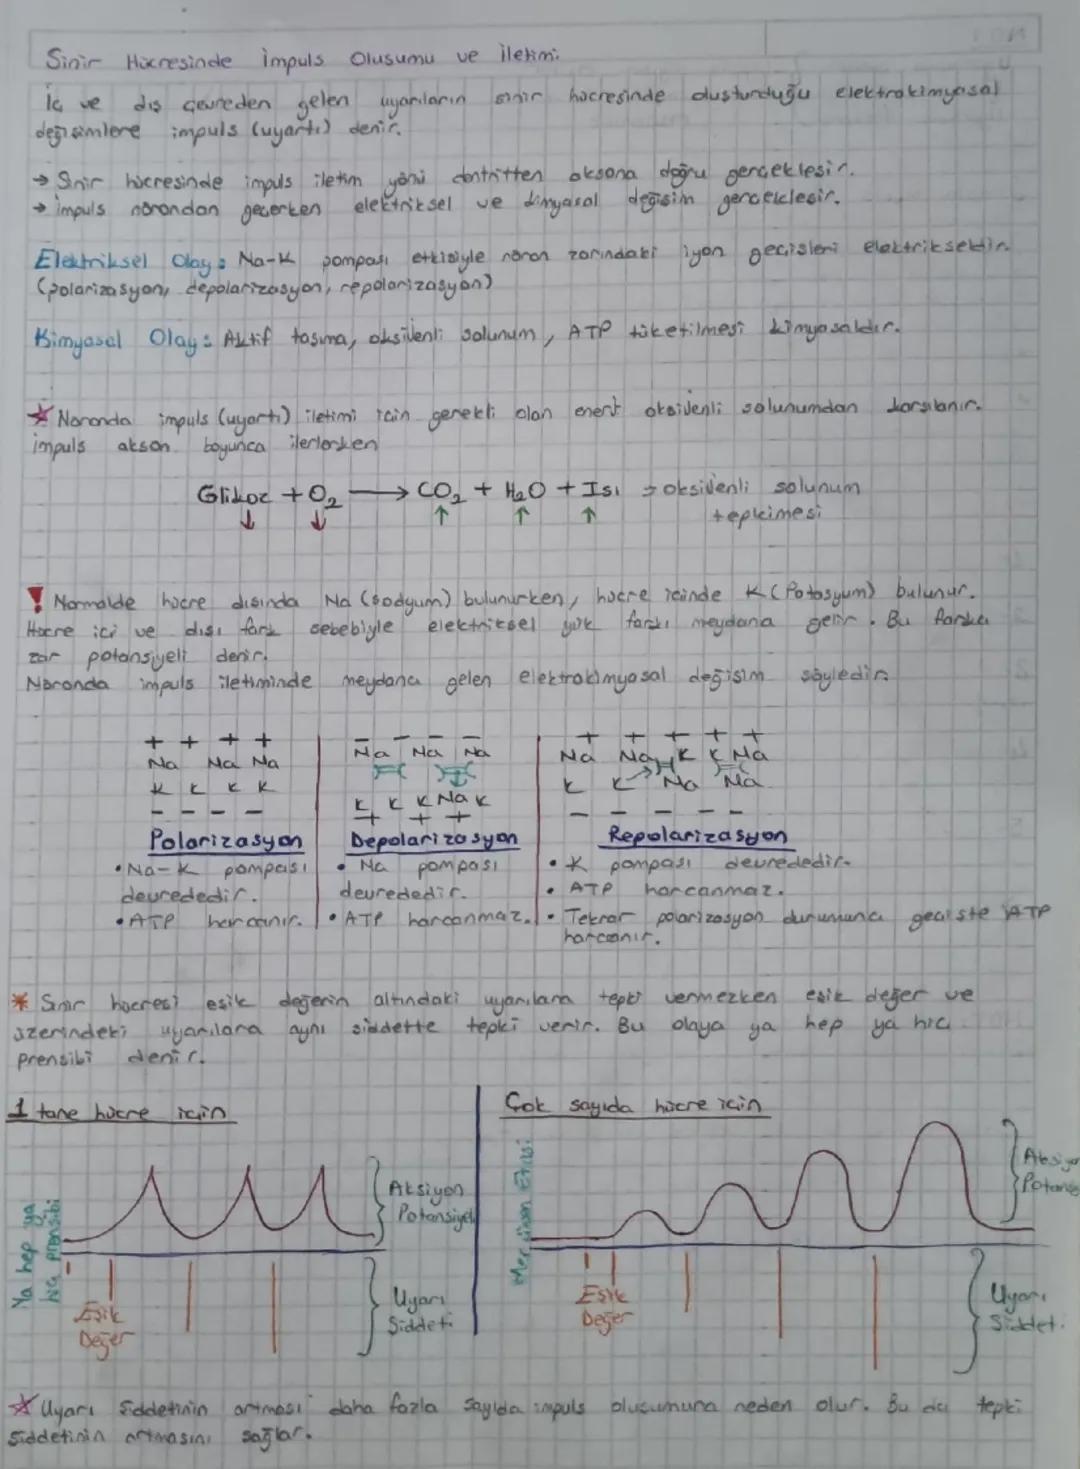 Sinir Hücresinde İmpuls Oluşumu ve İletimi
İç ve dış çevreden gelen uyarıların sinir hücresinde oluşturduğu elektrokimyasal
değişimlere impuls (uyartı) denir.
→ Sinir hücresinde impuls iletim yönü dentritten aksona doğru gerçekleşir.
→ impuls nörondan geçerken elektriksel ve kimyasal değişim gerçekleşir.
Elektriksel Olay: Na-K pompası etkisiyle nöron zarındaki iyon geçişleri elektrikseldir.
(polarizasyon, depolarizasyon, repolarizasyon)
Kimyasal Olay: Aktif taşıma, oksijenli solunum, ATP tüketilmesi kimyasaldır.
Nöronda impuls (uyartı) iletimi için gerekli olan enerji oksijenli solunumdan karşılanır.
impuls akson boyunca ilerlerken
Glikoz + O₂ → CO₂ + H₂O + Isı → oksijenli solunum
↓ ↓ ↑ ↑ ↑ tepkimesi
! Normalde hücre dışında Na (Sodyum) bulunurken, hücre içinde K (Potasyum) bulunur.
Hücre içi ve dışı fark sebebiyle elektriksel yük farkı meydana gelir. Bu farka
zar potansiyeli denir.
Nöronda impuls iletiminde meydana gelen elektrokimyasal değişim şöyledir:
+ + + +
Na Na Na
K K K K
- - - -
Polarizasyon
• Na-K pompası
devrededir.
• ATP harcanır.
- - -
Na Na Na
K K K Na K
+ + +
Depolarizasyon
• Na pompası
devrededir.
• ATP harcanmaz.
+ + + + +
Na Na K K Na
K K Na Na
- - - - -
Repolarizasyon
• K pompası devrededir.
• ATP harcanmaz.
• Tekrar polarizasyon durumuna geçişte ATP
harcanır.
* Sinir hücresi eşik değerin altındaki uyarılara tepki vermezken eşik değer ve
üzerindeki uyarılara aynı şiddette tepki verir. Bu olaya ya hep ya hiç
prensibi denir.
1 tane hücre için
Ya hep ya
hiç prensibi
Aksiyon
Potansiyeli
Eşik
Değer
Uyarı
Şiddeti
Çok sayıda hücre için
Merdiven Etkisi
Aksiyon
Potans
Eşik
Değer
Uyarı
Şiddet
Uyarı Şiddetinin artması daha fazla sayıda impuls oluşumuna neden olur. Bu da tepki
şiddetinin artmasını sağlar.